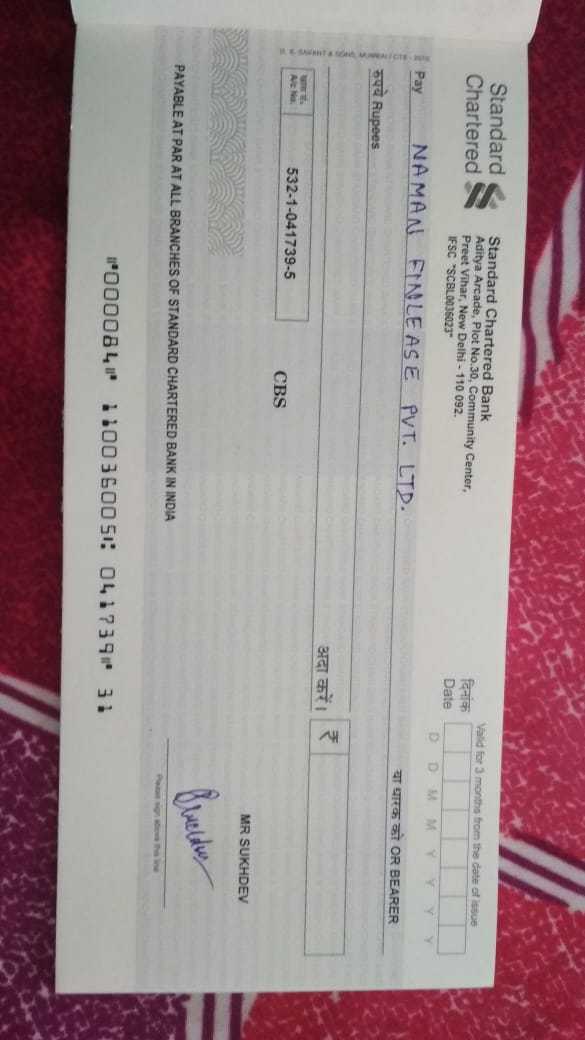 Standard
Chartered
Standard Chartered Bank
Aditya Arcade, Plot No.30, Community Center,
Preet Vihar, New Delhi - 110 092.
IFSC "SCBL0036023"
Valid for 3 months from the date of issue
दिनांक
Date
D D M M Y Y Y Y
Pay NAMAN FINLEASE PVT. LTD.
या धारक को OR BEARER
रुपये Rupees
अदा करें।
₹
खाता सं.
A/c No.
532-1-041739-5
CBS
MR SUKHDEV
PAYABLE AT PAR AT ALL BRANCHES OF STANDARD CHARTERED BANK IN INDIA
Please sign above this line
⑈000084⑈ 110036005⑆ 041739⑈ 31